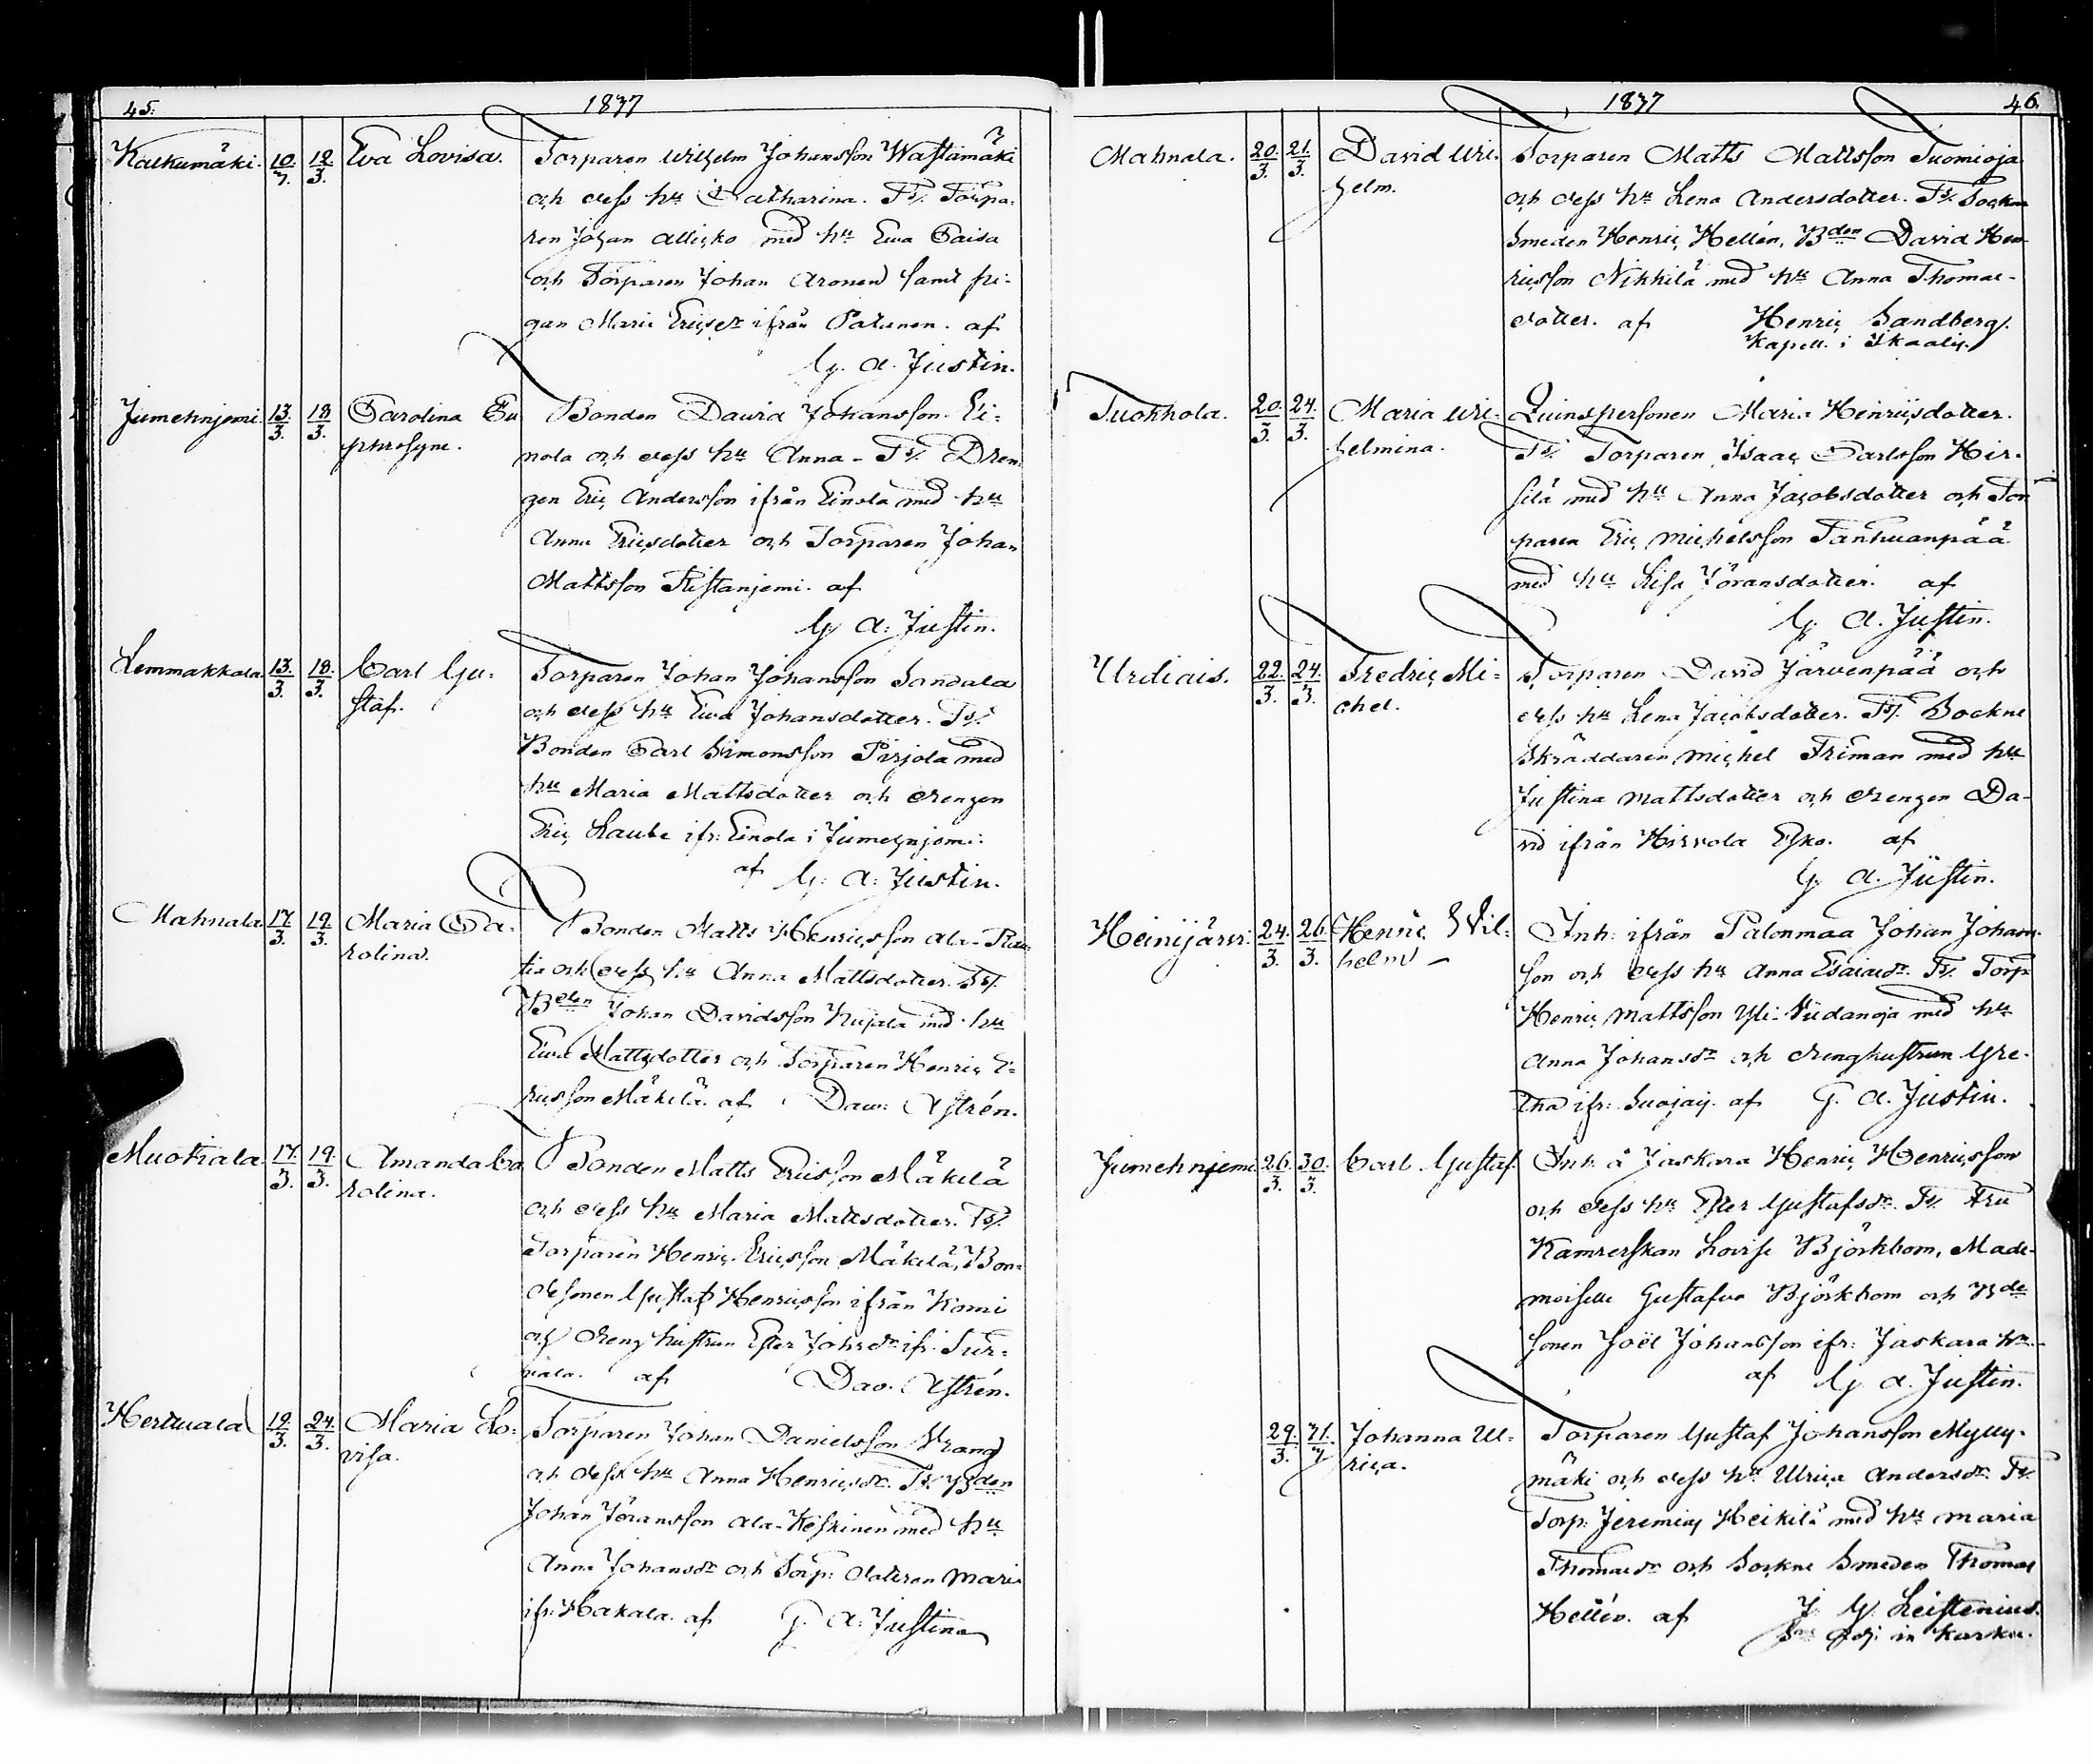 45. 1837
Kalkumäki. 10/3. 12/3. Eva Lovisa. Torparen Wilhelm Johansson Wästämäki
och dess hu Catharina. Ts. Torpa-
ren Johan Allisko med hu Ewa Caisa
och Torparen Johan Aronen samt pi-
gan Maria Ericsdr ifrån Palanen. af
G. A. Justin.
Jumehnjemi 13/3. 18/3. Carolina Eu Bonden David Johansson Ei-
phrosyne. nola och dess hu Anna - Ts. Dren-
gen Eric Andersson ifrån Einola med hu
Anna Ericsdotter och Torparen Johan
Mattsson Ristanjemi. af
G. A. Justin.
Lemmakkala 13/3. 18/3. Carl Gu- Torparen Johan Johansson Sandala
staf. och dess hu Ewa Johansdotter. Ts.
Bonden Carl Simonsson Pirjola med
hu Maria Mattsdotter och drengen
Eric Laube ifr: Einola i Jumehnjemi:
af G. A. Justin.
Mahnala 17/3. 19/3. Maria Ca- Bonden Matts Henricsson Ala-Rau-
rolina. tia och dess hu Anna Mattsdotter. Ts.
Bden Johan Davidsson Kujala med hu
Ewa Mattsdotter och Torparen Henric E-
ricsson Mäkelä. af Daw: Astrén.
Muotiala 17/3. 19/3. Amanda Ca Bonden Matts Ericsson Mäkelä
rolina. och dess hu Maria Mattsdotter. Ts.
Torparen Henric Ericsson Mäkelä, Bon-
desonen Gustaf Henricsson ifrån Komi
och dreng hustrun Ester Johsdr ifr. Sur-
vala. af Dav. Astrén.
Herttuala 19/3. 24/3. Maria Lo- Torparen Johan Danielsson Wrang
visa. och dess hu Anna Henricsdr. Ts. Bden
Johan Jöransson Ala-Keskinen med hu
Anna Johansdr och Torp: dottren Maria
ifr: Hakala. af G. A. Justin
1837 46.
Mahnala. 20/3. 21/3. David Wil- Torparen Matts Mattsson Tuomioja
helm. och dess hu Lena Andersdotter. Ts. Sockne
Smeden Henric Hellén, Bden David Hen-
ricsson Nikkilä med hu Anna Thomae-
dotter. af Henric Sandberg.
Kapell. i Ikaalis.
Tuokkola. 20/3. 24/3. Maria Wil- Quinspersonen Maria Henricsdotter.
helmina. Ts. Torparen Isaac Carlsson Hir-
silä med hu Anna Jacobsdotter och Tor
paren Eric Michelsson Tanhuanpää
med hu Lisa Jöransdotter. af
G. A. Justin.
Urdiais. 22/3. 24/3. Fredric Mi- Torparen David Järvenpää och
chel. dess hu Lena Jacobsdotter. Ts. Sockne
Skräddaren Michel Friman med hu
Justina Mattsdotter och drengen Da-
vid ifrån Hirvola Esko. af
G. A. Justin.
Heinijärvi: 24/3. 26/3. Henric Wil- Inh: ifrån Palonmaa Johan Johans-
helm - son och dess hu Anna Esaiaedr. Ts. Torp
Henric Mattsson Yli-Nüdanoja med hu
Anna Johansdr och drenghustrun Gre-
tha ifr: Suojais. af G. A. Justin.
Jumehnjemi 26/3. 30/3. Carl Gustaf. Inh: å Jaskara Henric Henricsson
och dess hu Ester Gustafsdr. Ts. Fru
Kamrerskan Lovise Björkbom, Made-
moiselle Gustafva Björkbom och Bde
sonen Joël Johansson ifr: Jaskara
af G. A. Justin.
29/3. 31/3 Johanna Ul- Torparen Gustaf Johansson Mylly-
rica. mäki och dess hu Ulrica Andersdr. Ts.
Torp: Jeremias Heikilä med hu Maria
Thomaedr och Sockne Smeden Thomas
Hellén. af J. G. Leistenius.
Adj: in Karku.